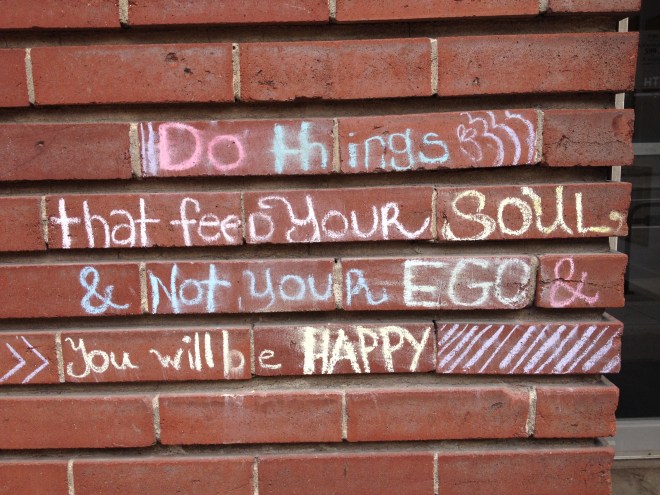 Do things
that feed YOUR SOUL
& Not your EGO &
You will be HAPPY
HT